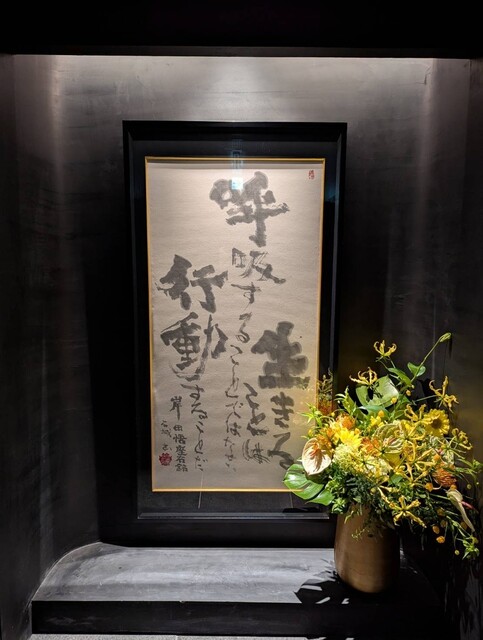 生きる
とは
呼吸することではない
行動することだ
岸田
座右銘